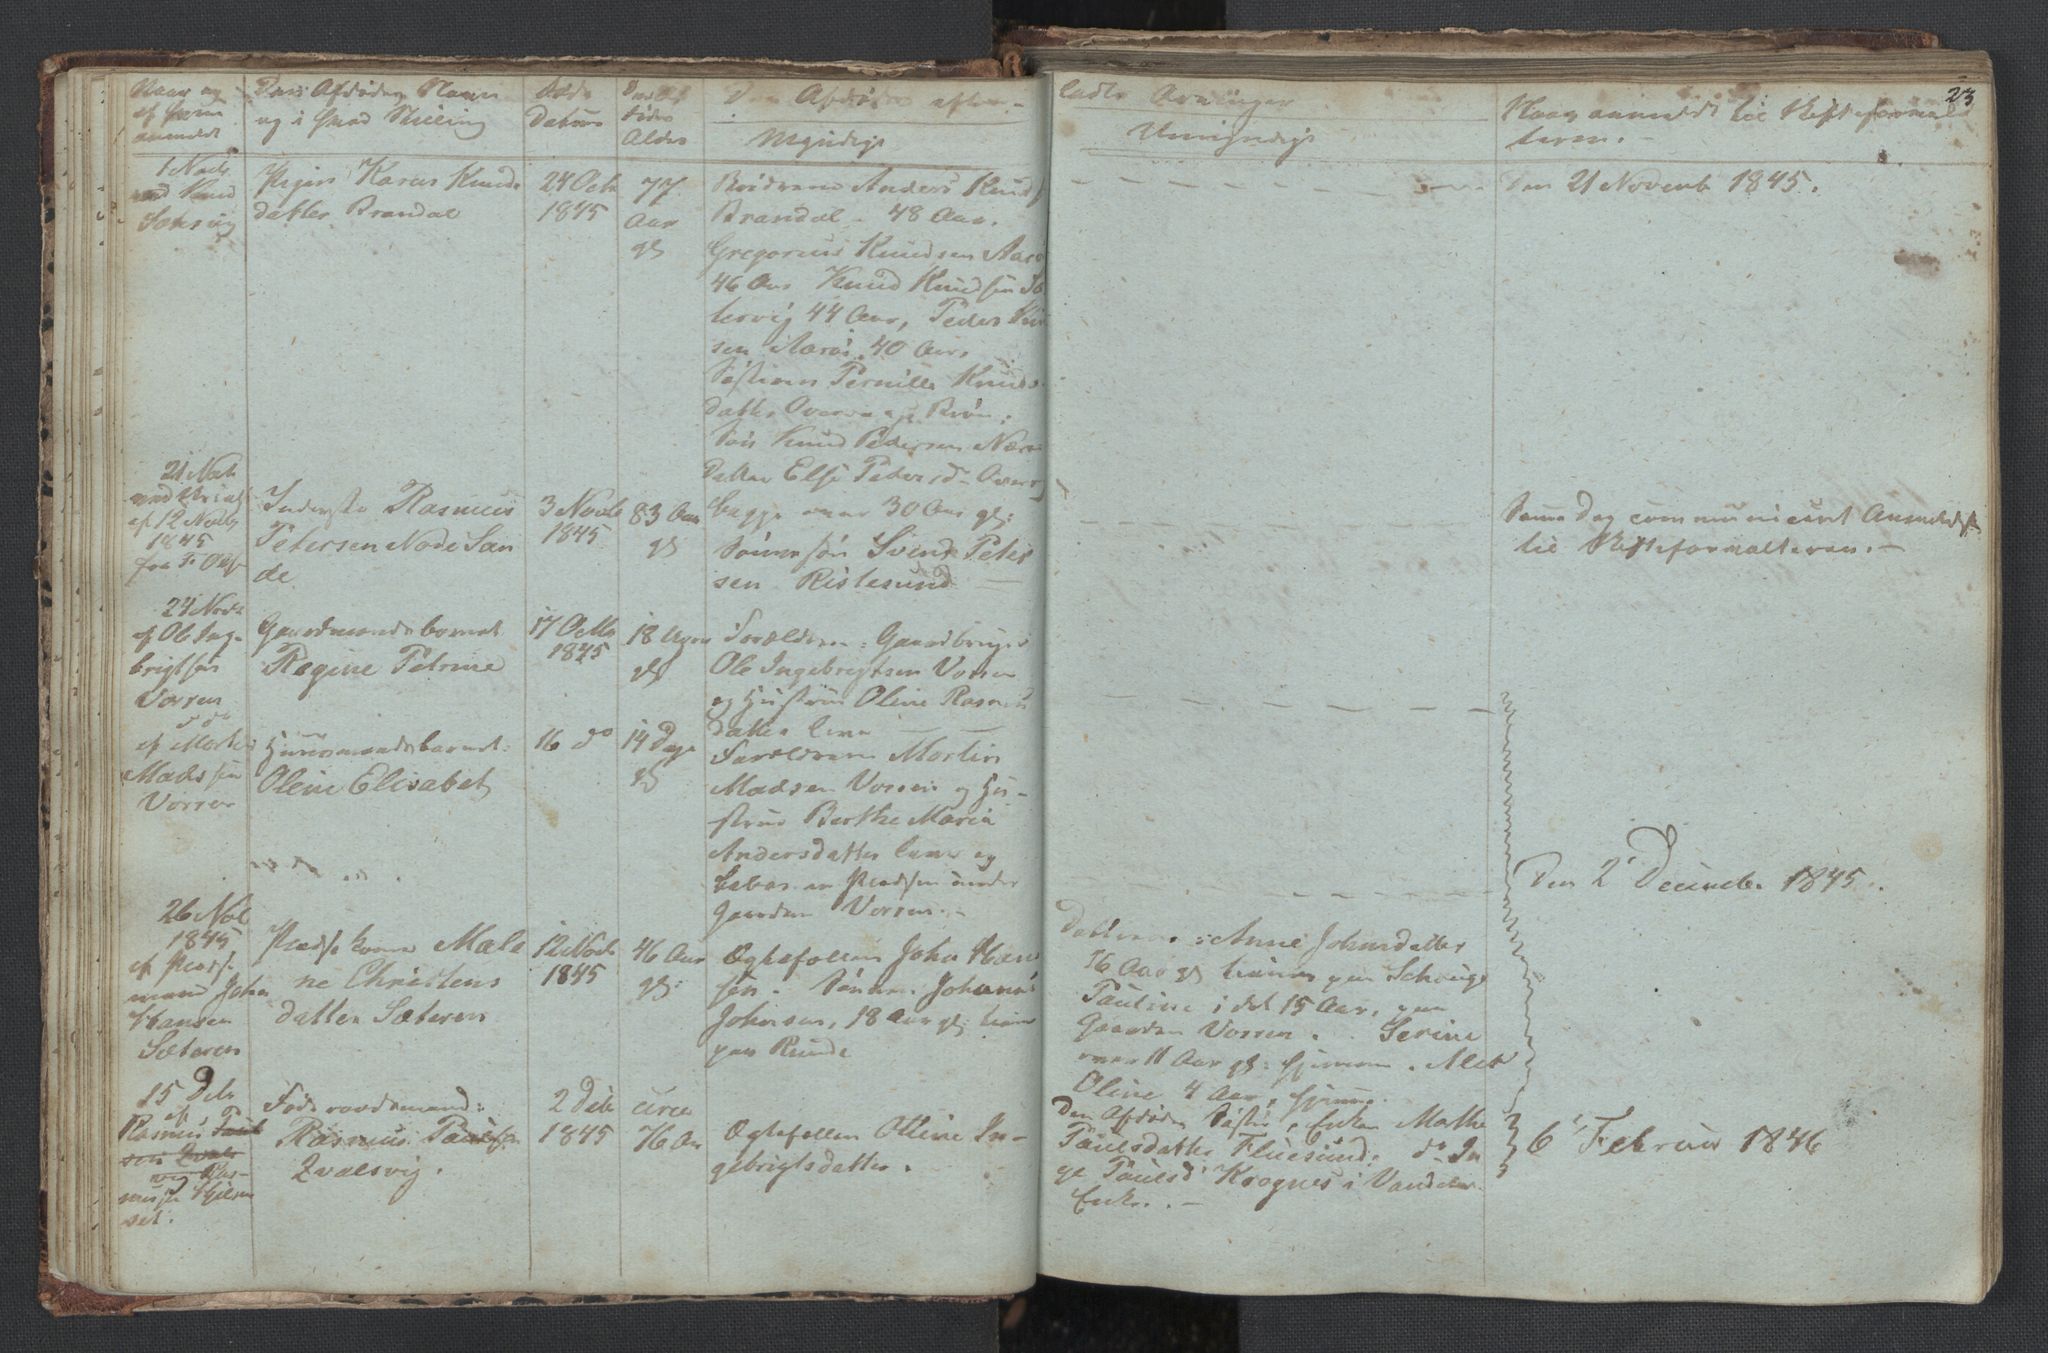 Naar og
af hvem
anmeldt
Den Afdødes Navn
og i hvad Stilling
Døds
Datum
Den Af-
dødes
Alder
Den Afdødes efter-
Myndige
ladte Arvinger
Umyndige
Naar anmeldt til Skifteforval
teren.
23
1 Novb
ved Knud
Pigen Karen Knuds
datter Brandal
24 Octb
1845
77
Aar
gl
Brødrene Anders Knuds
Brandal 48 Aar.
Gregorius Knudsen
46 Aar Knud Knudsen
44 Aar, Peder
sen 40 Aar
Søsteren Pernille Knuds
datter
Søn Knud Pedersen
Datter Else Pedersd
begge over 30 Aar gl:
Den 21 Novemb 1845.
21 Novb
af 12 Novbr
1845
fra
Inderste Rasmus
Petersen Node San
de
3 Novb
1845
83 Aar
gl
Sønnesøn Svend Peter
sen Ristesund
Samme Dag communiceret Anmeldelse
til Skifteforvalteren.
24 Novb
af Ole Inge-
brigtsen
Vorren
Gaardmandsbarnet
Regine Petrine
17 Octb
1845
18 Uger
gl
Forældrene: Gaardbruger
Ole Ingebrigtsen Vorren
og Hustrue Oline Rasmus
datter leve
do
af Morten
Madssen
Vorren
Huusmandsbarnet:
Oline Elisabet
16 do
14 Dage
gl
Forældrene Mortin
Madsen Vorren og Hu-
strue Berthe Maria
Andersdatter lever og
beboer en Pladsen under
Gaarden Vorren.
Den 2' Decemb. 1845.
26 Nov
1845
af Plads-
mand John
Hansen
Sæteren
Pladsekone Male
ne Christens
datter Sæteren
12 Novb
1845
46 Aar
gl:
Ægtefællen John Han
sen. Sønnen Johannes
Johnsen, 18 Aar gl: tiener
paa Runde
Døttrene: Anne Johnsdatter
16 Aar gl tiener paa
Pauline i det 15 Aar, paa
Gaarden Vorren. Serine
over 11 Aar gl: hjemme. Alet
Oline 4 Aar, hjemme
15 Deb
af
Rasmus Paul
sen Kval
vig Ras-
muss
set.
Føderaadsmand:
Rasmus Paulsen
Kvalsvig.
2 Deb
1845
circa
76 Aar
Ægtefællen Oline In-
gebrigtsdatter.
Den Afdødes Søster, Enken Marthe
Paulsdatter Fluesund. do In
ge Paulsd Krognes i Vandelv
Enke.
6' Februar 1846